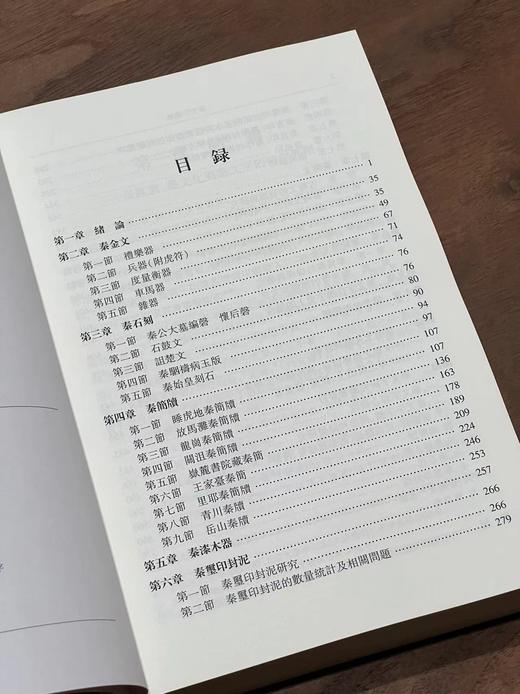 目録
第一章 緒論 1
第二章 秦金文 35
第一節 禮樂器 35
第二節 兵器(附虎符) 49
第三節 度量衡器 67
第四節 車馬器 71
第五節 雜器 74
第三章 秦石刻 76
第一節 秦公大墓編磬 懷后磬 76
第二節 石鼓文 80
第三節 詛楚文 90
第四節 秦駰禱病玉版 94
第五節 秦始皇刻石 97
第四章 秦簡牘 107
第一節 睡虎地秦簡牘 107
第二節 放馬灘秦簡牘 136
第三節 龍崗秦簡牘 163
第四節 關沮秦簡牘 178
第五節 嶽麓書院藏秦簡 189
第六節 王家臺秦簡 209
第七節 里耶秦簡牘 224
第八節 青川秦牘 246
第九節 岳山秦牘 253
第五章 秦漆木器 257
第六章 秦璽印封泥 266
第一節 秦璽印封泥研究 266
第二節 秦璽印封泥的數量統計及相關問題 279